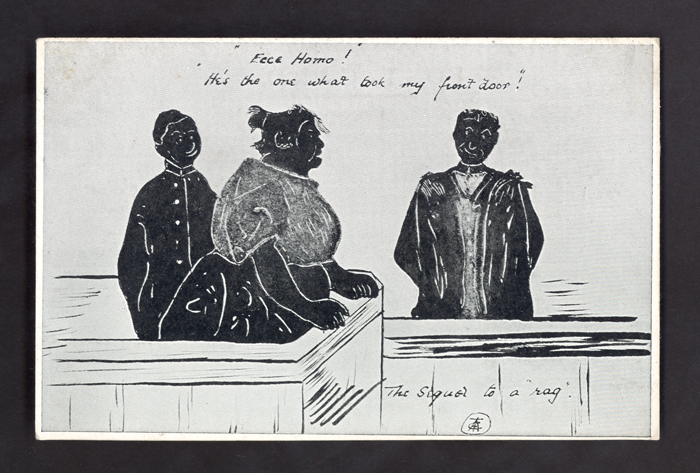 " Ecce Homo!"
"He's the one what took my front door!"
The sequel to a "rag".